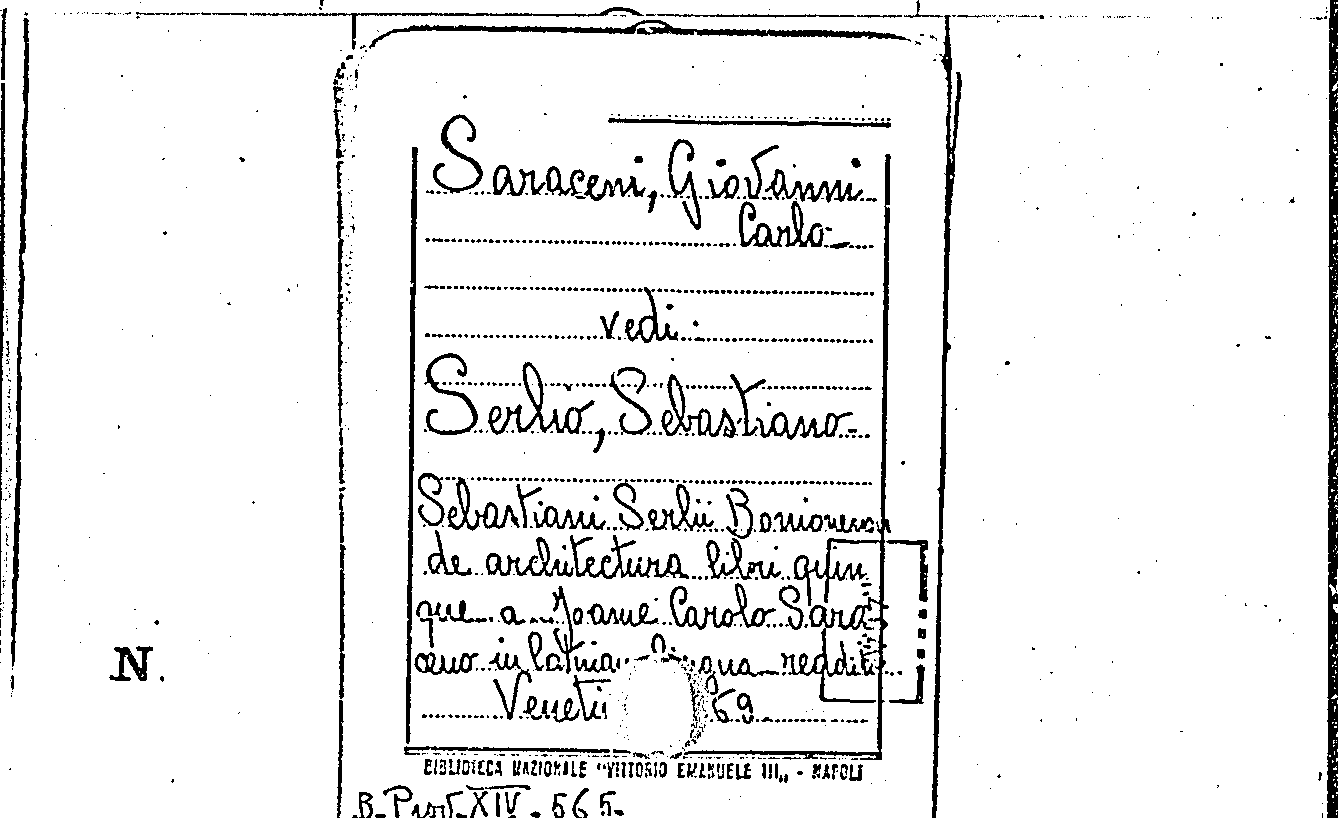 Saraceni, Giovanni
Carlo
vedi:
Serlio, Sebastiano
Sebastiani Serlii
de architectura libri quin
que a Joanne Carolo Sara
ceno in latinam linguam reddit
Venetii 69
BIBLIOTECA NAZIONALE "VITTORIO EMANUELE III„ - NAPOLI
B. Prov. XIV. 565.
N.